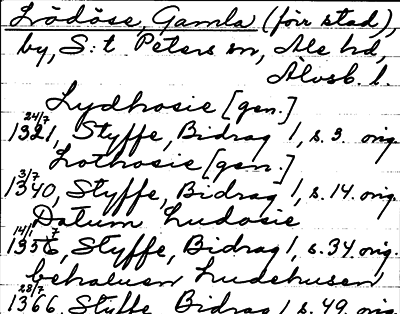 Lödöse, Gamla (förr stad),
by, S:t Peters sn, Ale hd,
Älvsb. l.
Lydhosie [gen.]
24/7 1321, Styffe, Bidrag 1, s. 3. orig.
Lothosie [gen.]
3/7 1340, Styffe, Bidrag 1, s. 14. orig.
Datum Ludosie
1356, Styffe, Bidrag 1, s. 34. orig.
Ludehusen
28/7 1366, Styffe Bidrag 1 s. 49. orig.